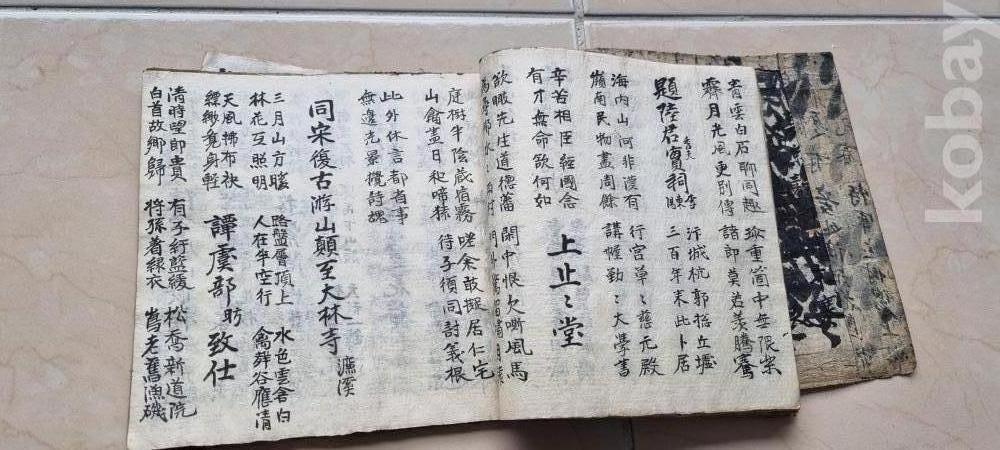 青雲白石聊同趣
霽月光風更別傳
珍重箇中無限楽
諸郎莫苦羨騰騫
題陸君實祠
秀夫
汴城杭郭拓丘墟
三百年来此卜居
海内山河非漢有
嶺南民物盡周餘
行宮草〻慈元殿
講幄勤〻大學書
辛苦相臣經國念
有才無命欲何如
上止〻堂
欲瞰先生道德藩
閑中恨欠嘶風馬
庭樹半陰藏宿霧
山禽盡日和啼猿
嗟余敢擬居仁宅
待子須同討義根
此外休言都省事
無邊光景攬詩魂
同宋復古游山顛至大林寺
濂溪
三月山方暖
林花互照明
路盤層頂上
人在半空行
水色雲含白
禽聲谷應清
天風拂布袂
縹緲覺身輕
譚虞部昉致仕
清時望郎貴
白首故鄉歸
有子紆藍綬
将孫着綠衣
松喬新道院
老舊漁磯
kobay